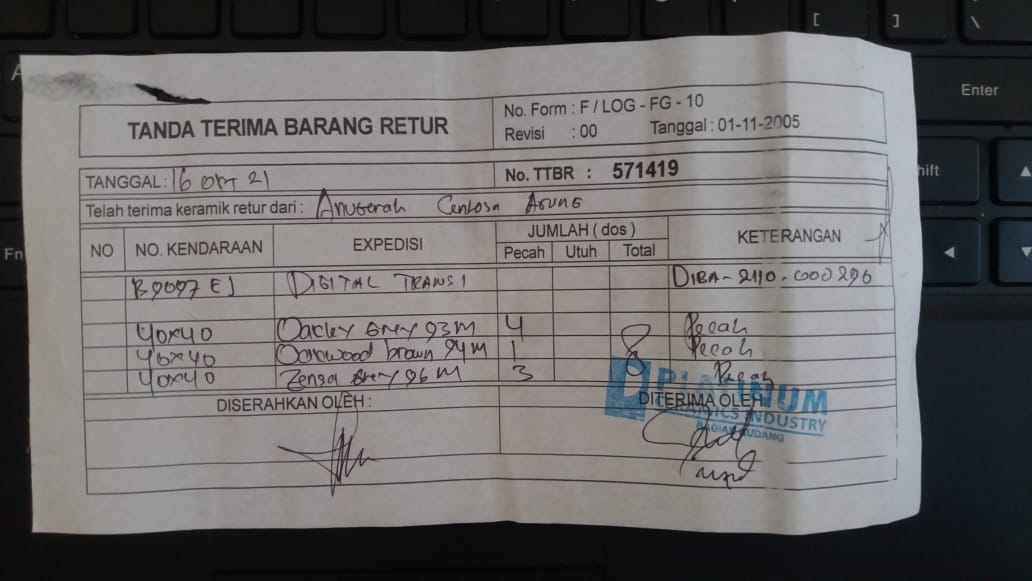 TANDA TERIMA BARANG RETUR
No. Form : F / LOG - FG - 10
Revisi : 00 Tanggal : 01-11-2005
TANGGAL : 16 Okt 21 No. TTBR : 571419
Telah terima keramik retur dari : Anugerah Centosa Agung
NO NO. KENDARAAN EXPEDISI JUMLAH ( dos ) KETERANGAN
Pecah Utuh Total
DIGITAL TRANSI
40x40 Oakley Grey 93 M 4 Pecah
40x40 brown 94 M 1 8 Pecah
40x40 Zensa Grey 96 M 3 Pecah
DISERAHKAN OLEH : DITERIMA OLEH :
PLATINUM
CERAMICS INDUSTRY
BAGIAN GUDANG
[
]
\
Enter
Fn